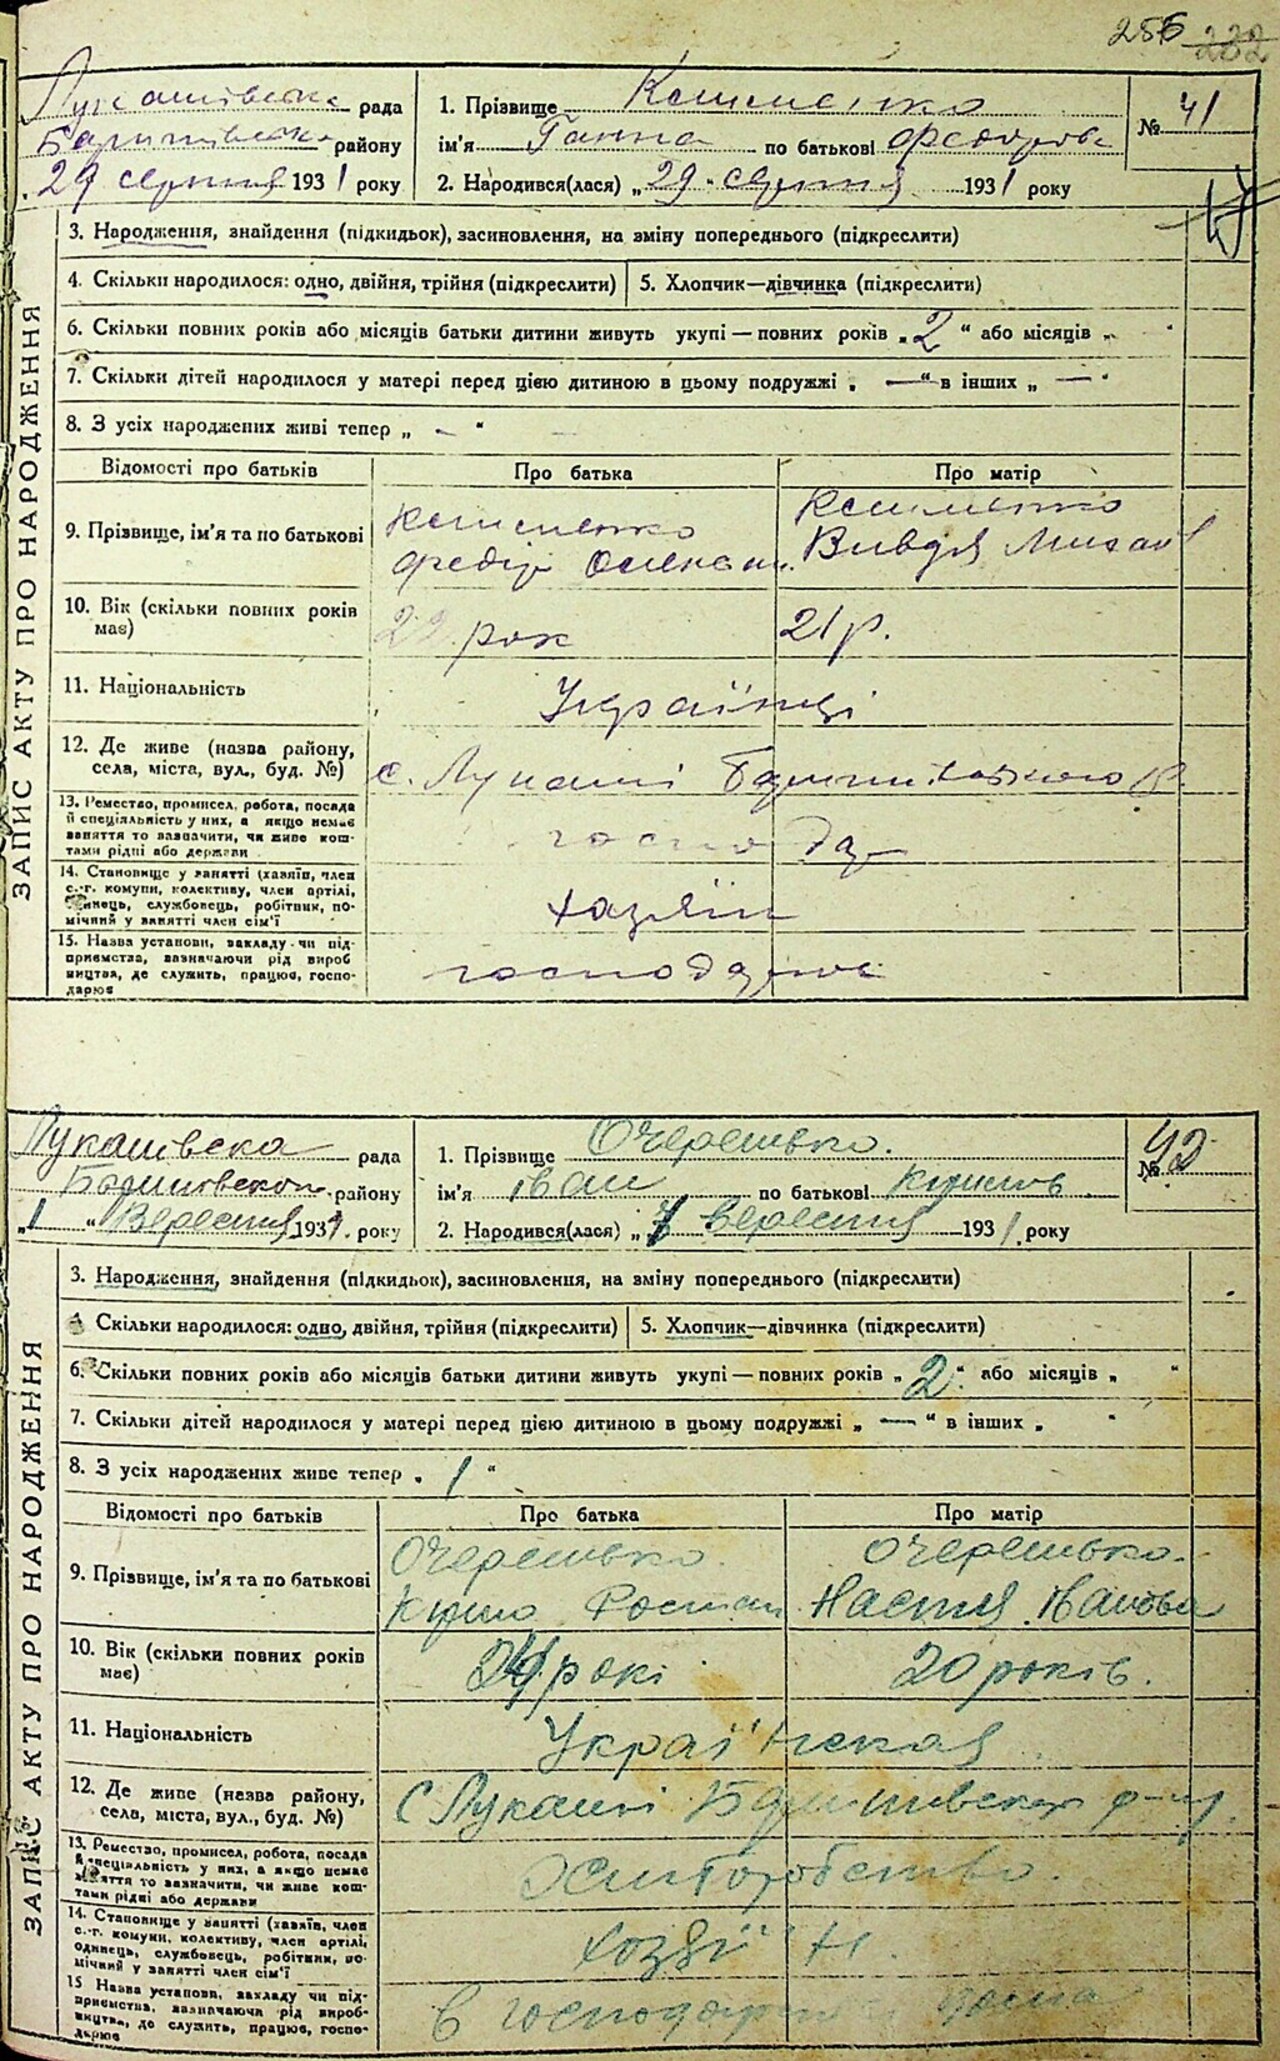 256 232
Лукашівська рада
Баришівська району
29 серпня 1931 року
1. Прізвище Клименко
ім'я Ганна по батькові Федорова
2. Народився(лася) „29" серпня 1931 року
№ 41
ЗАПИС АКТУ ПРО НАРОДЖЕННЯ
3. Народження, знайдення (підкидьок), засиновлення, на зміну попереднього (підкреслити)
4. Скільки народилося: одно, двійня, трійня (підкреслити)
5. Хлопчик—дівчинка (підкреслити)
6. Скільки повних років або місяців батьки дитини живуть укупі — повних років „2" або місяців „ "
7. Скільки дітей народилося у матері перед цією дитиною в цьому подружжі „ — " в інших „ — "
8. З усіх народжених живі тепер „ - "
Відомості про батьків
Про батька
Про матір
9. Прізвище, ім'я та по батькові
Клименко
Федір
Клименко
Вивдя Михайл
10. Вік (скільки повних років
має)
рок
21 р.
11. Національність
Українці
12. Де живе (назва району,
села, міста, вул., буд. №)
с. Лукаші Баришівського р.
13. Ремество, промисел, робота, посада
й спеціяльність у них, а якщо немає
заняття то зазначити, чи живе кош-
тами рідні або держави
господар
14. Становище у занятті (хазяїн, член
с.-г. комуни, колективу, член артілі,
одинець, службовець, робітник, по-
мічний у занятті член сім'ї
хазяїн
15. Назва установи, закладу чи під-
приємства, зазначаючи рід вироб
ництва, де служить, працює, госпо-
дарює
господарює
Лукашівска рада
Баришовскои району
„1" Вересня 1931 року
1. Прізвище Очеретько.
ім'я іван по батькові Кирилов
2. Народився(лася) „ вересня 1931 року
№ 42
ЗАПИС АКТУ ПРО НАРОДЖЕННЯ
3. Народження, знайдення (підкидьок), засиновлення, на зміну попереднього (підкреслити)
4. Скільки народилося: одно, двійня, трійня (підкреслити)
5. Хлопчик—дівчинка (підкреслити)
6. Скільки повних років або місяців батьки дитини живуть укупі — повних років „2" або місяців „ "
7. Скільки дітей народилося у матері перед цією дитиною в цьому подружжі „ — " в інших „ "
8. З усіх народжених живе тепер „ 1 "
Відомості про батьків
Про батька
Про матір
9. Прізвище, ім'я та по батькові
Очеретько.
Кирило
Очеретько.
Настя Іванова
10. Вік (скільки повних років
має)
рокі
20 років.
11. Національність
Українская
12. Де живе (назва району,
села, міста, вул., буд. №)
С Лукаші Баришивскаго р-ну.
13. Ремество, промисел, робота, посада
й спеціяльність у них, а якщо немає
заняття то зазначити, чи живе кош-
тами рідні або держави
14. Становище у занятті (хазяїн, член
с.-г. комуни, колективу, член артілі,
одинець, службовець, робітник, по-
мічний у занятті член сім'ї
хозяїн.
15 Назва установи, закладу чи під-
приємства, зазначаючи рід вироб-
ництва, де служить, працює, госпо-
дарює
В